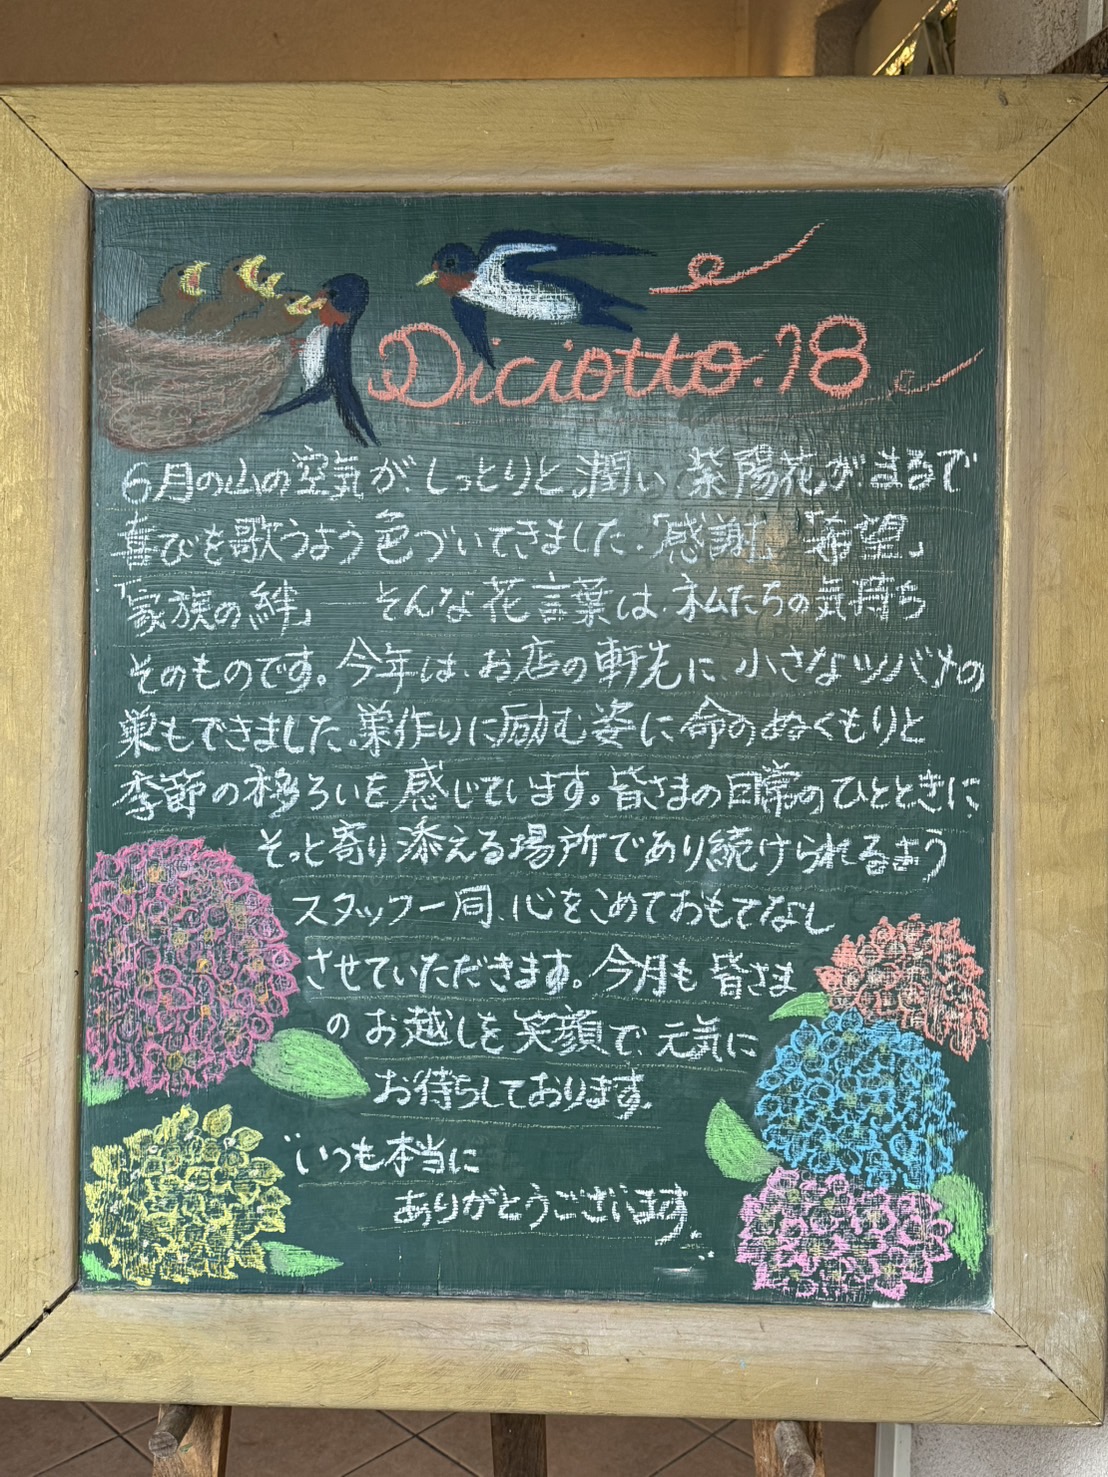 Diciotto.18
6月の山の空気が、しっとりと、潤い 紫陽花が まるで
喜びを歌うよう 色づいてきました.「感謝」「希望」
「家族の絆」 — そんな 花言葉は、私たちの気持ち
そのものです。今年は、お店の軒先に、小さなツバメの
巣もできました。巣作りに励む姿に 命のぬくもりと
季節の移ろいを感じています。皆さまの日常のひとときに、
そっと寄り添える場所であり続けられるよう
スタッフ一同、心をこめておもてなし
させていただきます。今月も 皆さま
のお越しを笑顔で、元気に
お待ちしております。
いつも本当に
ありがとうございます